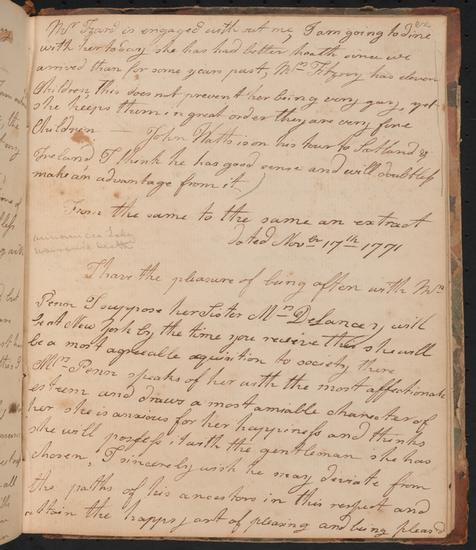 Mrs Izard is engaged without me, I am going to dine
with her today she has had better health since we
arrived than for some years past, Mrs Fitzroy has eleven
Children, this does not prevent her being very gay, yet
she keeps them in great order they are very fine
Children — John Watts is on his tour to Scotland &
Ireland I think he has good sense and will doubtless
make an advantage from it
From the same to the same an extract
dated Novber 17th 1771
I have the pleasure of being often with Mrs
Penn I suppose her Sister Mrs DeLancey will
be at New York by the time you receive this she will
be a most agreeable aquisition to society there
Mrs Penn speaks of her with the most affectionate
esteem and draws a most amiable character of
her she is anxious for her happiness and thinks
she will possess it with the gentleman she has
chosen, I sincerely wish he may deviate from
the paths of his ancestors in this respect and
attain the happy art of pleasing and being pleased